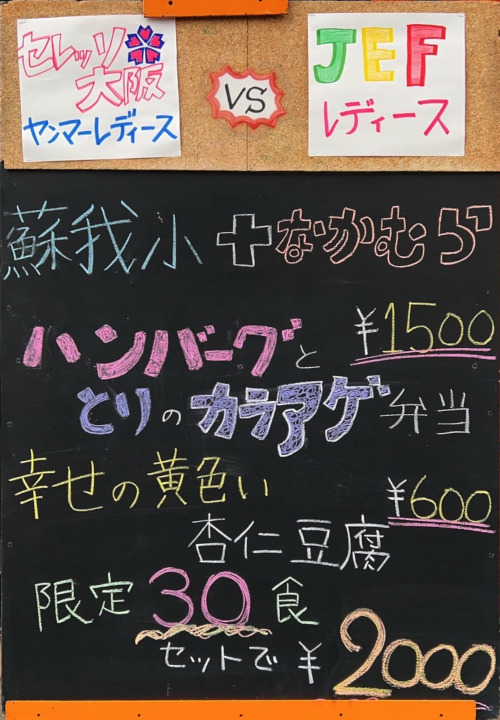 セレッソ
大阪
ヤンマーレディース
VS
JEF
レディース
蘇我小+なかむら
ハンバーグと
¥1500
とりのカラアゲ弁当
幸せの黄色い
¥600
杏仁豆腐
限定30食
セットで¥2000